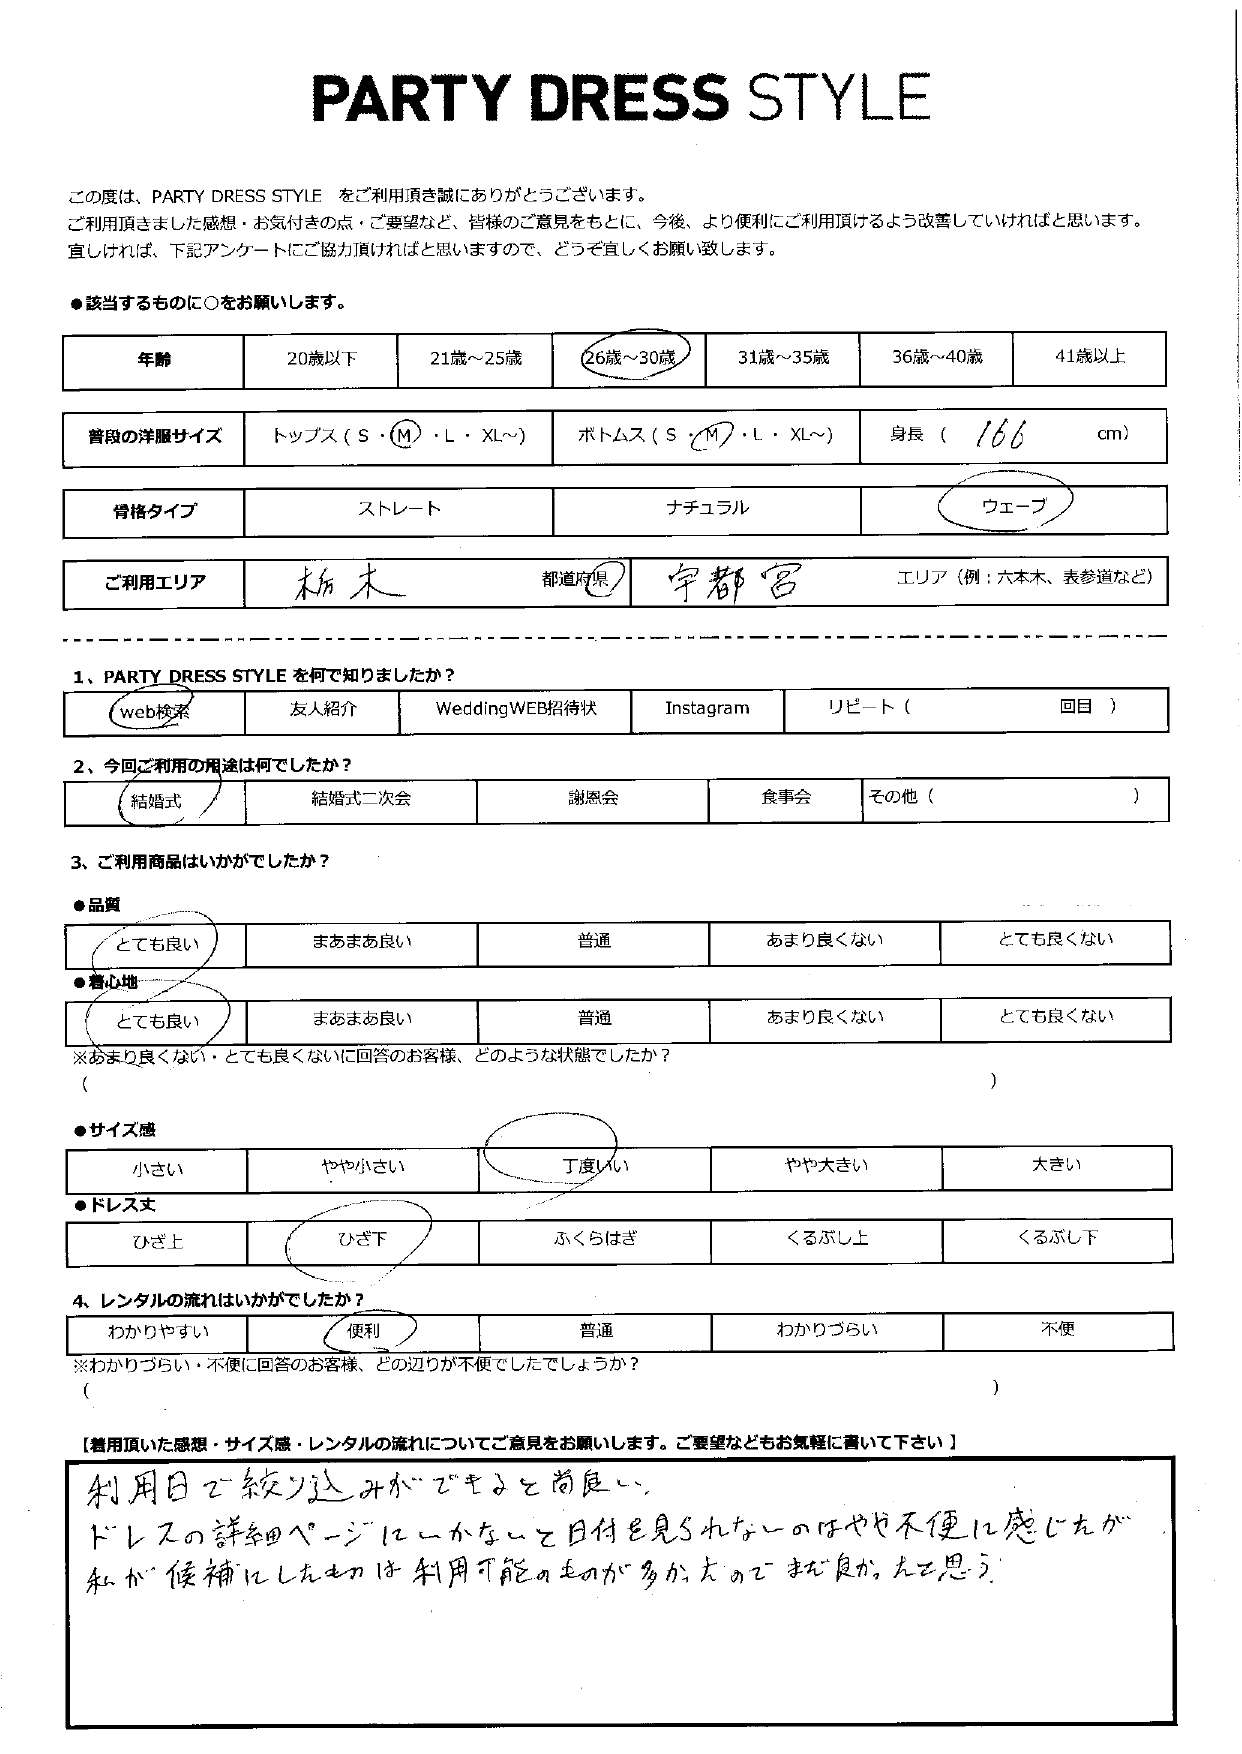 PARTY DRESS STYLE
この度は、PARTY DRESS STYLE をご利用頂き誠にありがとうございます。
ご利用頂きました感想・お気付きの点・ご要望など、皆様のご意見をもとに、今後、より便利にご利用頂けるよう改善していければと思います。
宜しければ、下記アンケートにご協力頂ければと思いますので、どうぞ宜しくお願い致します。
●該当するものに○をお願いします。
年齢 20歳以下 21歳～25歳 26歳～30歳 31歳～35歳 36歳～40歳 41歳以上
普段の洋服サイズ トップス ( S ・ M ・ L ・ XL～) ボトムス ( S ・ M ・ L ・ XL～) 身長 ( 166 cm)
骨格タイプ ストレート ナチュラル ウェーブ
ご利用エリア 栃木 都道府県 宇都宮 エリア（例：六本木、表参道など）
1、PARTY DRESS STYLE を何で知りましたか？
web検索 友人紹介 WeddingWEB招待状 Instagram リピート ( 回目 )
2、今回ご利用の用途は何でしたか？
結婚式 結婚式二次会 謝恩会 食事会 その他 ( )
3、ご利用商品はいかがでしたか？
●品質
とても良い まあまあ良い 普通 あまり良くない とても良くない
●着心地
とても良い まあまあ良い 普通 あまり良くない とても良くない
※あまり良くない・とても良くないに回答のお客様、どのような状態でしたか？
( )
●サイズ感
小さい やや小さい 丁度いい やや大きい 大きい
●ドレス丈
ひざ上 ひざ下 ふくらはぎ くるぶし上 くるぶし下
4、レンタルの流れはいかがでしたか？
わかりやすい 便利 普通 わかりづらい 不便
※わかりづらい・不便に回答のお客様、どの辺りが不便でしたでしょうか？
( )
【着用頂いた感想・サイズ感・レンタルの流れについてご意見をお願いします。ご要望などもお気軽に書いて下さい 】
利用日で絞り込みができると尚良い、
ドレスの詳細ページにいかないと日付を見られないのはやや不便に感じたが
私が候補にしたものは利用可能のものが多かったのでまだ良かったと思う。